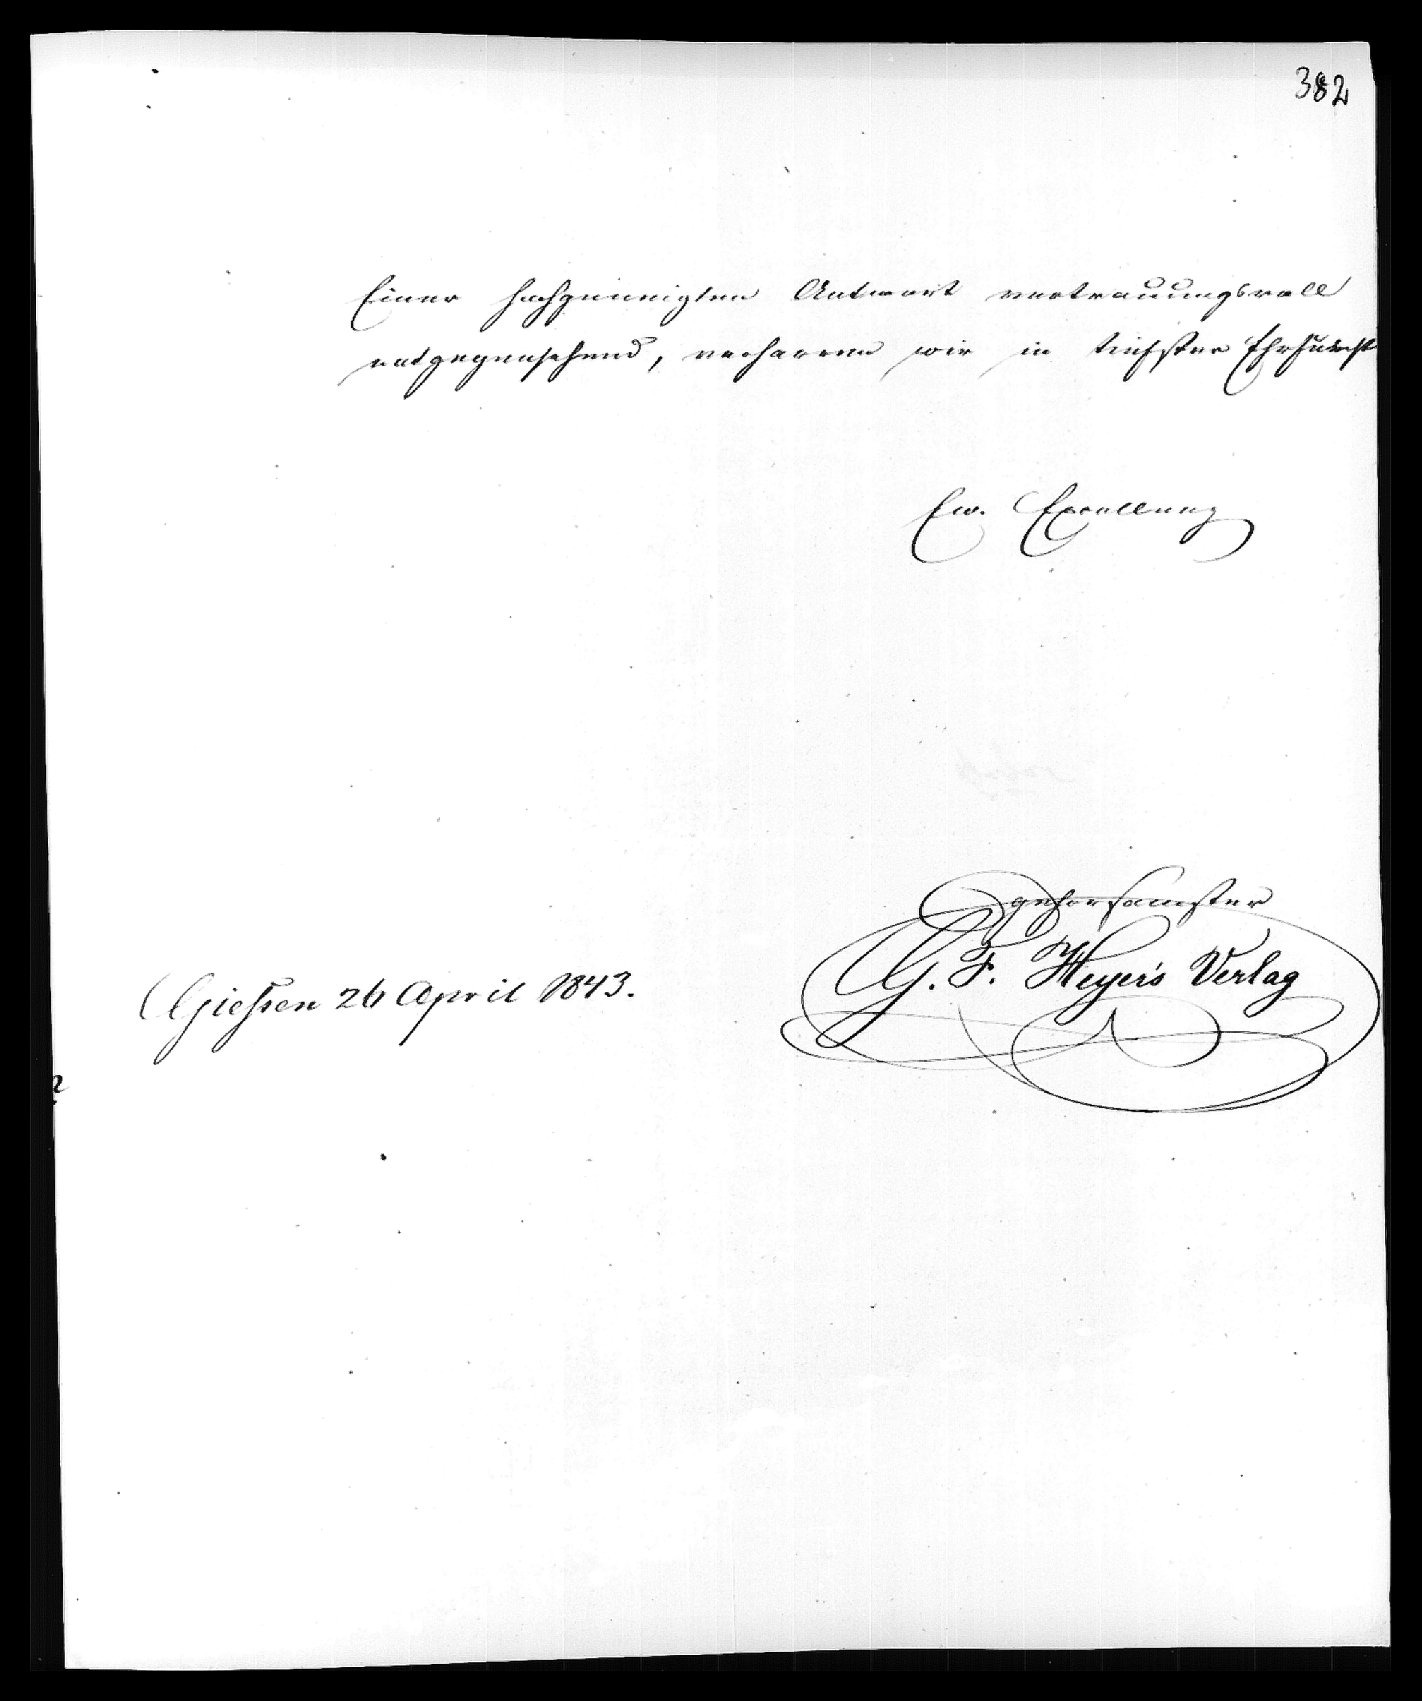 382
Einer hochgeneigten Antwort vertrauungsvoll
entgegensehend, verharren wir in tiefster Ehrfurcht
Ew. Excellenz
gehorsamster
G. F. Heyer's Verlag
Giessen 26 April 1843.